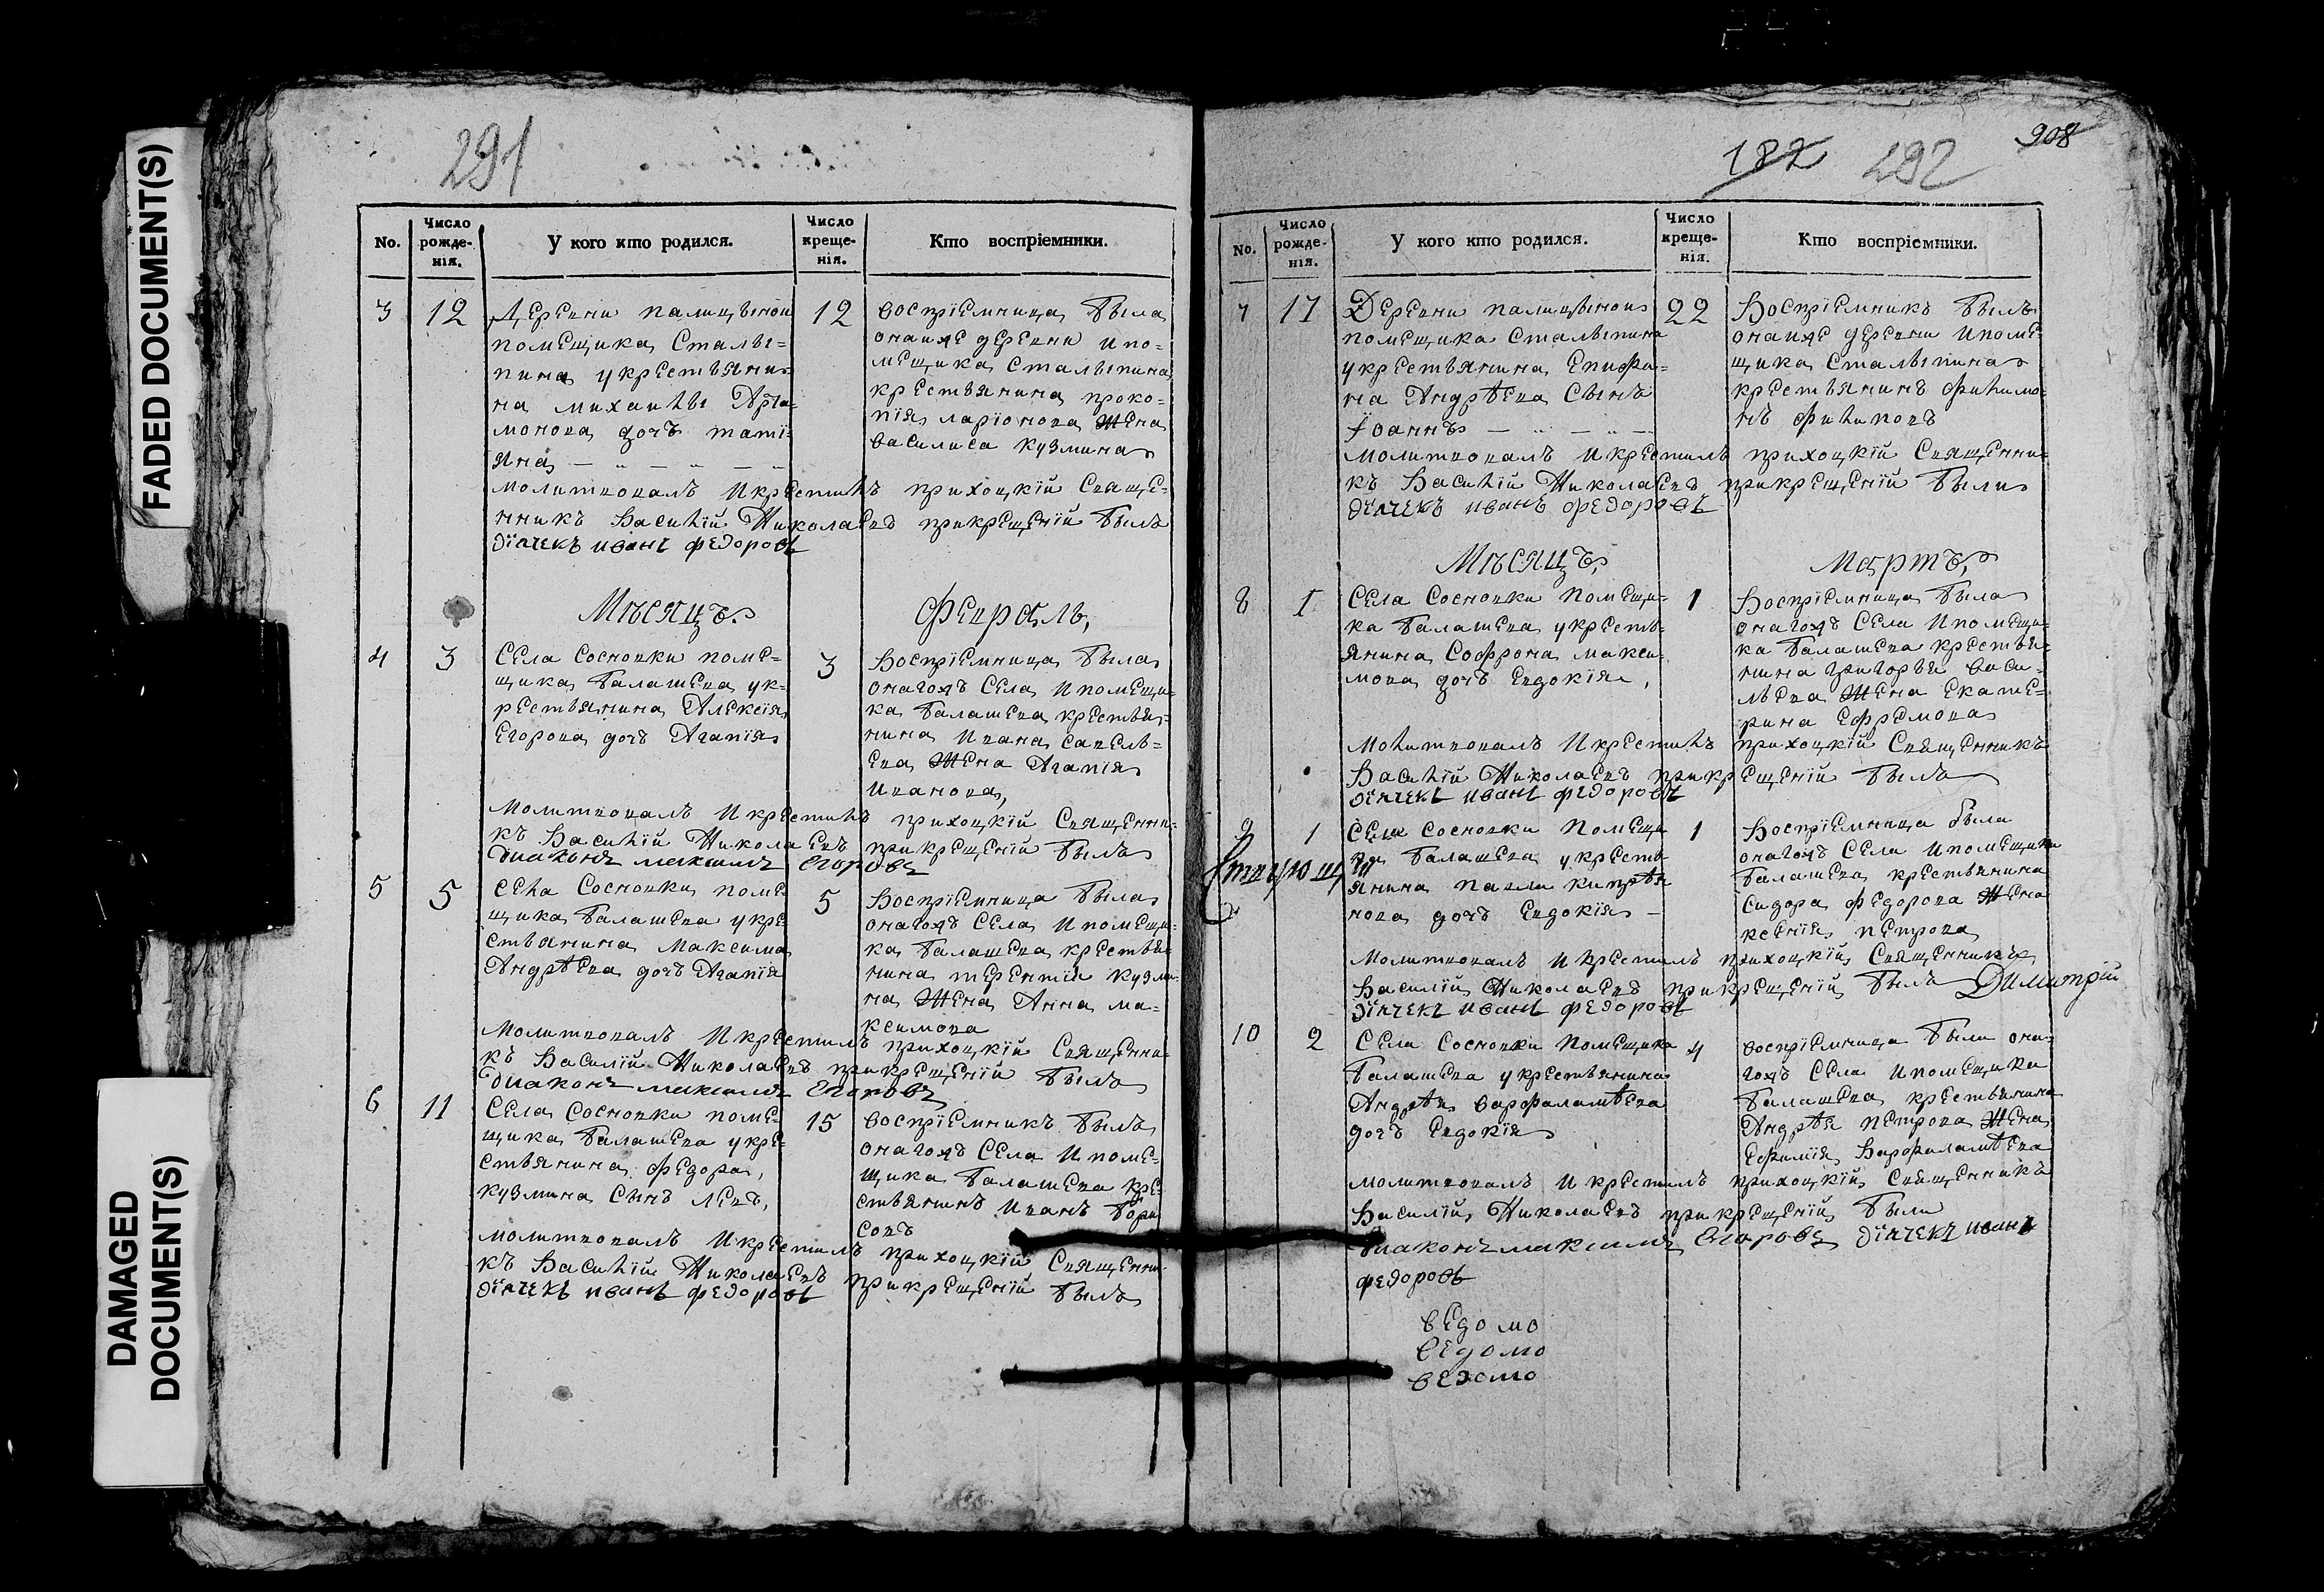 FADED DOCUMENT(S)
DAMAGED
DOCUMENT(S)
291
No.
Число
рожде-
нія.
У кого кто родился.
Число
креще-
нія.
Кто воспріемники.
3
12
Деревни палицыной
помещика Сталы=
пина у крестьяни=
на михаилы Арта=
монова дочь тати=
яна — „ — „ — „
12
воспріемница была
онаиже деревни и по=
мещика Сталыпина
крестьянина проко=
пія ларіонова Жена
василиса кузмина
молитвовалъ и крестилъ прихоцкій Свяще=
нникъ Василій Николаевъ прикрещеніи былъ
діячекъ иванъ федоровъ
Мѣсяцъ
Февраль,
4
3
Села Сосновки поме=
щика Балашева у к=
рестьянина Алексія
Егорова дочь Агапія
3
Воспріемница была
онагожъ Села и помещи=
ка Балашева крестья=
нина Ивана савель=
ева Жена Агапія
Иванова,
Молитвовалъ и крестилъ прихоцкій Священни=
къ Василій Николаевъ прикрещеніи былъ
диаконъ максимъ Егоровъ
5
5
села Сосновки поме
щика Балашева у кре
стьянина Максима
Андрѣева дочь Агапія
5
Воспріемница была
онагожъ Села и помещи=
ка Балашева крестья=
нина терентія кузми=
на Жена Анна ма=
ксимова
Молитвовалъ и крестилъ прихоцкій Священни=
къ Василій Николаевъ прикрещеніи былъ
диаконъ максимъ Егоровъ
6
11
Села Сосновки поме=
щика Балашева у кре=
стьянина федора,
кузмина Сынъ левъ,
15
воспріемникъ былъ
онагожъ Села и поме=
щика Балашева кре=
стьянинъ Иванъ Бори
совъ
молитвовалъ и крестилъ прихоцкій Священни=
къ Василій Николаевъ прикрещеніи былъ
діячекъ иванъ федоровъ
182
292
908
No.
Число
рожде-
нія.
У кого кто родился.
Число
креще-
нія.
Кто воспріемники.
7
17
Деревни палицыной
помещика Сталыпина
у крестьянина Епифа=
на Андрѣева Сынъ
Іоаннъ — „ — „ —
22
Воспріемникъ былъ
онаиже деревни и поме=
щика Сталыпина
крестьянинъ филимо=
нъ филиповъ
молитвовалъ и крестилъ прихоцкій Священни=
къ Василій Николаевъ прикрещеніи были
діячекъ иванъ федоровъ
Мѣсяцъ,
Мартъ,
8
1
Села Сосновки Помещи=
ка Балашева у кресть=
янина Софрона макси=
мова дочь Евдокія,
1
Воспріемница была
онагожъ Села и помещи=
ка Балашева крестья=
нина григорья васи=
льева Жена Екате=
рина Ефремова
Молитвовалъ и крестилъ прихоцкій Священникъ
Василій Николаевъ прикрещеніи былъ
діячекъ иванъ федоровъ
9
1
Села Сосновки Помещи
ка Балашева у кресть=
янина павла кипрѣя
нова дочь Евдокія —
1
Воспріемница была
онагожъ Села и помещика
Балашева крестьянина
Сидора федорова Жена
ксенія петрова
Молитвовалъ и крестилъ прихоцкій Священникъ
Василій Николаевъ прикрещеніи былъ Димитрій
діячекъ иванъ федоровъ
10
2
Села Сосновки Помещика
Балашева у крестьянина
Андрѣя варфаламѣева
дочь Евдокія
4
воспріемница была она=
гожъ Села и помещика
Балашева крестьянина
Андрѣя петрова Жена
Ефимія Варфаламѣева
молитвовалъ и крестилъ прихоцкій Священникъ
Василій Николаевъ прикрещеніи были
диаконъ максимъ Егоровъ діячекъ иванъ
федоровъ
ведомо
ведомо
ведомо